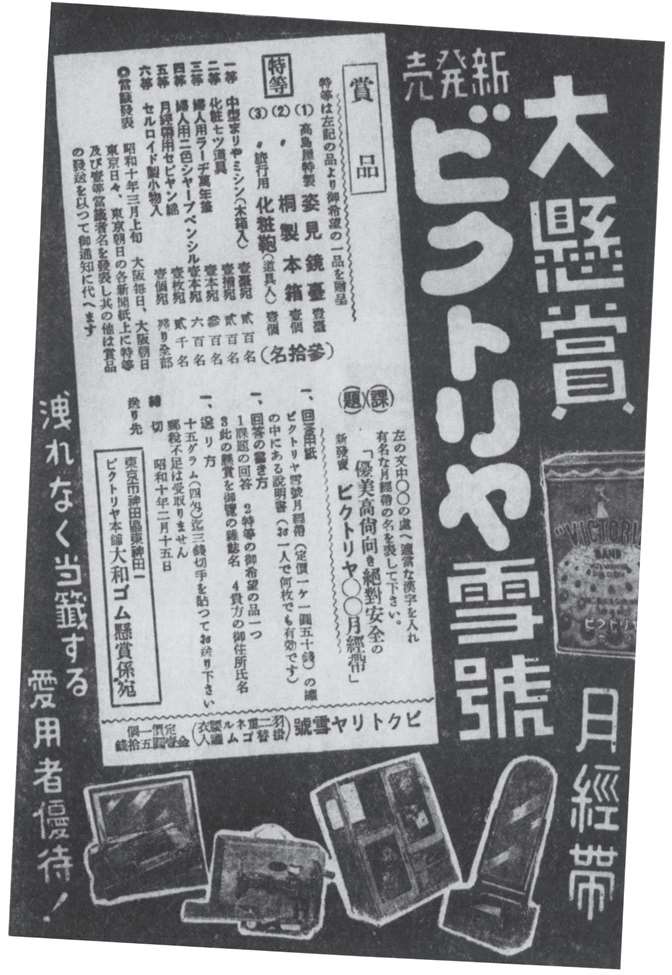 大懸賞
新発売
ビクトリヤ雪號
月經帶
"VICTORIA"
BAND
ビクトリヤ
賞品
特等は左記の品より御希望の一品を贈呈
特等
(1) 高島屋特製 姿見鏡臺 壹臺
(2) 〃 桐製本箱 壹個
(3) 〃旅行用 化粧鞄(道具入) 壹個
(參拾名)
一等 中型まりやミシン(木箱入) 壹臺宛 貳百名
二等 化粧七ツ道具 壹揃宛 貳百名
三等 婦人用ラーヂ萬年筆 壹本宛 參百名
四等 婦人用二色シャープペンシル 壹本宛 六百名
五等 月經帶用セビヤン 壹枚宛 貳千名
六等 セルロイド製小物入 壹個宛 殘り全部
◎當籤發表 昭和十年三月上旬 大阪毎日、大阪朝日
東京日々、東京朝日の各新聞紙上に特等
及び壹等當籤者名を發表し其の他は賞品
の發送を以つて御通知に代へます
課題
左の文中〇〇の處へ適當な漢字を入れ
有名な月經帶の名を表して下さい。
「優美高尚向き絕對安全の
新發賣 ビクトリヤ〇〇月經帶」
一、回答用紙
ビクトリヤ雪號月經帶(定價一ケ一圓五十錢)の罐
の中にある說明書(お一人で何枚でも有効です)
一、回答の書き方
1課題の回答 2特等の御希望の品一つ
3此の懸賞を御覽の雜誌名 4貴方の御住所氏名
一、送り方
十五グラム(四匁)迄三錢切手を貼つてお送り下さい
郵稅不足は受取りません
締切 昭和十年二月十五日
送り先
東京市神田區東神田一
ビクトリヤ本舖 大和ゴム懸賞係宛
ビクトリヤ雪號
定價一個金壹圓五拾錢
洩れなく当籤する
愛用者優待!